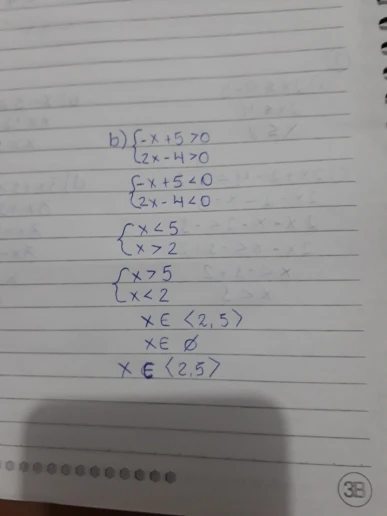 b) { -x+5>0
2x-4>0
{ -x+5<0
2x-4<0
{ x<5
x>2
{ x>5
x<2
x ∈ ⟨2,5⟩
x ∈ ∅
x ∈ ⟨2,5⟩
3B